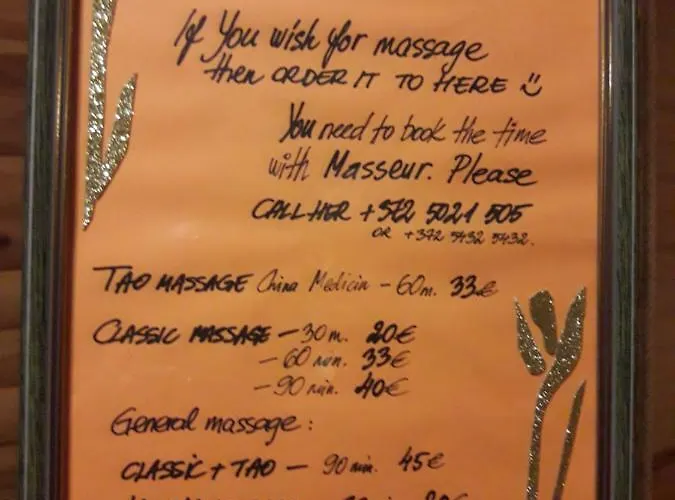 If You wish for massage
then ORDER IT TO HERE
You need to book the time
with Masseur. Please
CALL HER +372 5021 505
OR +372 5432 5432.
TAO MASSAGE China Medicin - 60m. 33€
CLASSIC MASSAGE - 30 m. 20€
- 60 min. 33€
- 90 min. 40€
General massage:
CLASSIC + TAO - 90 min. 45€